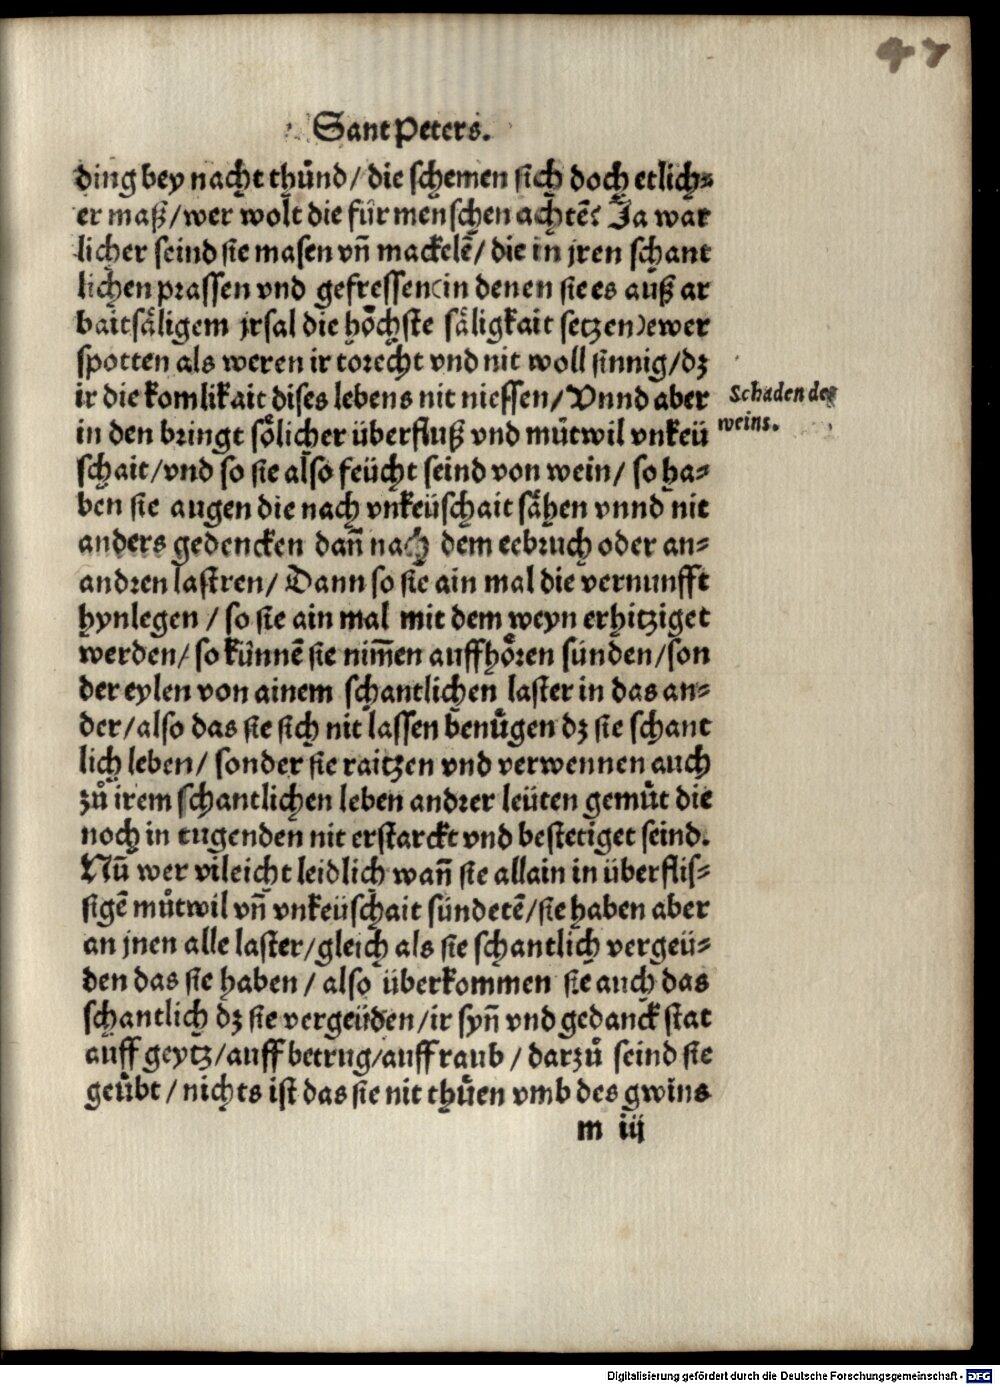 47
Sant Peters.
ding bey nacht thůnd/die schemen sich doch etlich⸗
er maß/wer wolt die für menschen achtē? Ja war
licher seind sie masen vñ mackelē/ die in jren schant
lichen prassen vnd gefressen(in denen sie es auß ar
baitsäligem jrsal die höchste säligkait setzen)ewer
spotten als weren ir torecht vnd nit woll sinnig/dz
ir die komlikait dises lebens nit niessen/Vnnd aber
in den bringt sölicher überfluß vnd můtwil vnkeü
schait/vnd so sie also feücht seind von wein/ so ha⸗
ben sie augen die nach vnkeüschait sähen vnnd nit
anders gedencken dañ nach dem eebruch oder an⸗
andren lastren/ Dann so sie ain mal die vernunfft
hynlegen / so sie ain mal mit dem weyn erhitziget
werden/ so künnē sie nim̄en auffhören sünden/son
der eylen von ainem schantlichen laster in das an⸗
der/also das sie sich nit lassen benügen dz sie schant
lich leben/ sonder sie raitzen vnd verwennen auch
zů irem schantlichen leben andrer leüten gemůt die
noch in tugenden nit erstarckt vnd bestetiget seind.
Nū wer vileicht leidlich wañ sie allain in überflis⸗
sigē můtwil vñ vnkeüschait sündetē/sie haben aber
an jnen alle laster/gleich als sie schantlich vergeü⸗
den das sie haben / also überkommen sie auch das
schantlich dz sie vergeüden/ir syñ vnd gedanck stat
auff geytz/auff betrug/auff raub / darzů seind sie
geübt / nichts ist das sie nit thüen vmb des gwins
Schaden des
weins.
m iij
Digitalisierung gefördert durch die Deutsche Forschungsgemeinschaft - DFG